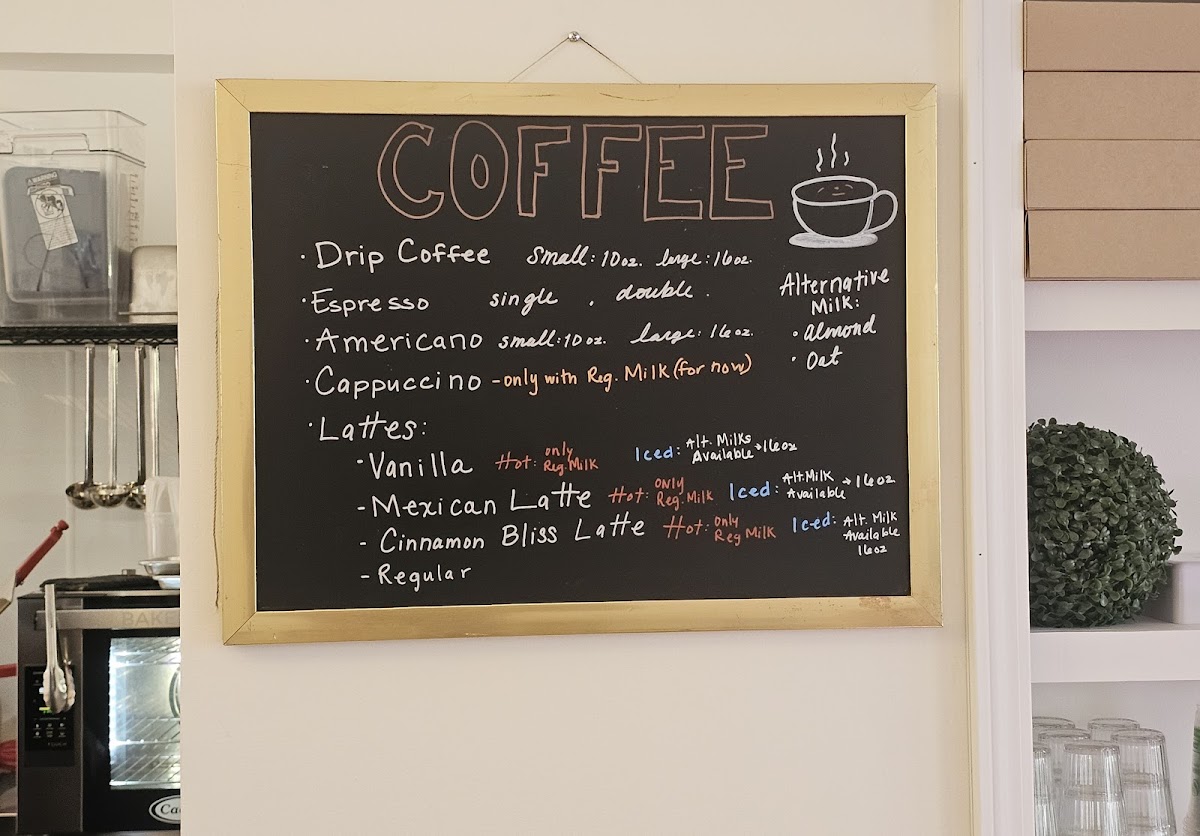 COFFEE
· Drip Coffee small: 10oz. large: 16oz.
· Espresso single . double.
· Americano small: 10oz. large: 16oz.
· Cappuccino - only with Reg. Milk (for now)
· Lattes:
· Vanilla Hot: only Reg. Milk Iced: Alt. Milks Available → 16oz
- Mexican Latte Hot: only Reg. Milk Iced: Alt. Milk Available → 16oz
- Cinnamon Bliss Latte Hot: only Reg Milk Iced: Alt. Milk Available 16oz
- Regular
Alternative
Milk:
· almond
· Oat
WARNING
BAKE
Ca